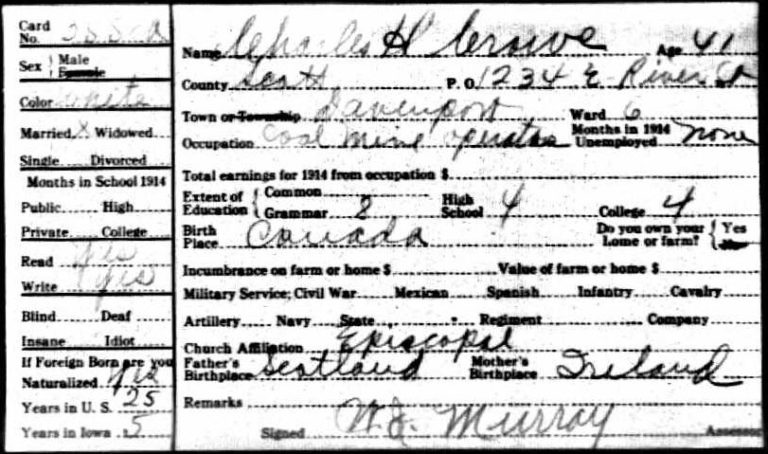 Card
No.
Sex Male
Female
Color White
Married X Widowed
Single Divorced
Months in School 1914
Public High
Private College
Read Yes
Write Yes
Blind Deaf
Insane Idiot
If Foreign Born are you
Naturalized Yes
Years in U. S. 25
Years in Iowa 5
Name Charles H Crowe Age 41
County Scott P. O. 1234 E River St
Town or Township Davenport Ward 6
Occupation Coal Mine operator Months in 1914 Unemployed None
Total earnings for 1914 from occupation $
Extent of Education Common
Grammar 8 High School 4 College 4
Birth Place Canada Do you own your home or farm? Yes
No
Incumbrance on farm or home $ Value of farm or home $
Military Service; Civil War Mexican Spanish Infantry Cavalry
Artillery Navy State Regiment Company
Church Affiliation Episcopal
Father's Birthplace Scotland Mother's Birthplace Ireland
Remarks
Signed W. J. Murray Assessor